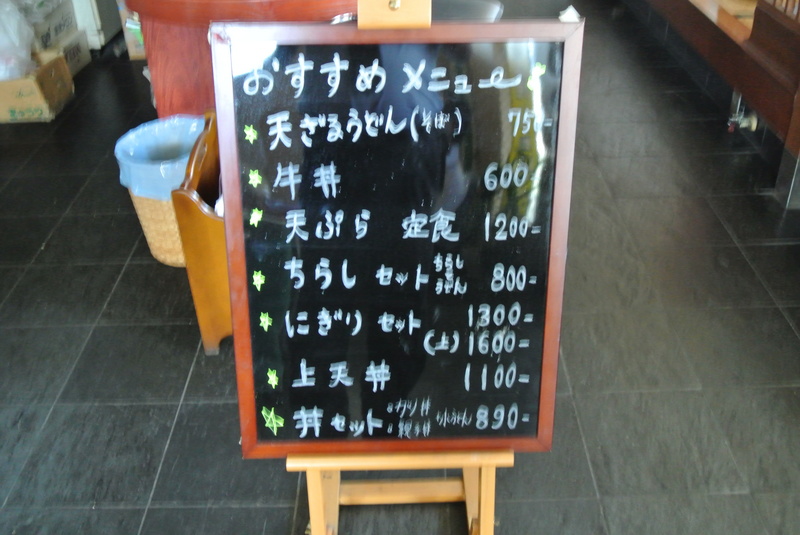 おすすめ メニュー
天ざるうどん(そば) 750-
牛丼 600-
天ぷら 定食 1200-
ちらし セット ちらし うどん 800-
にぎり セット 1300-
(上) 1600-
上天丼 1100-
丼セット カツ丼 親子丼 うどん 890-